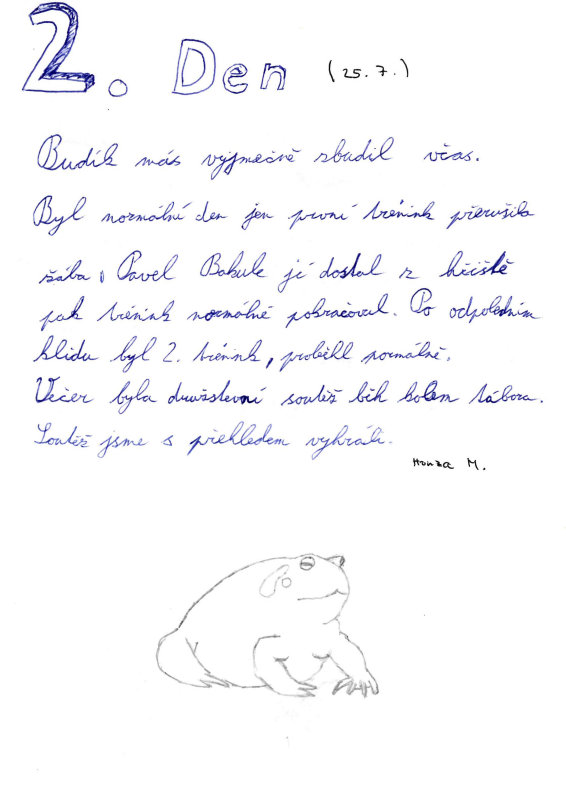 2. Den (25.7.)
Budík nás vyjmečně zbudil včas.
Byl normální den jen první trénink přerušila
žába, Pavel Bakule jí dostal z hřiště
pak trénink normálně pokračoval. Po odpoledním
klidu byl 2. trénink, proběhl normálně.
Večer byla družstevní soutěž běh kolem tábora.
Soutěž jsme s přehledem vyhráli.
Honza M.